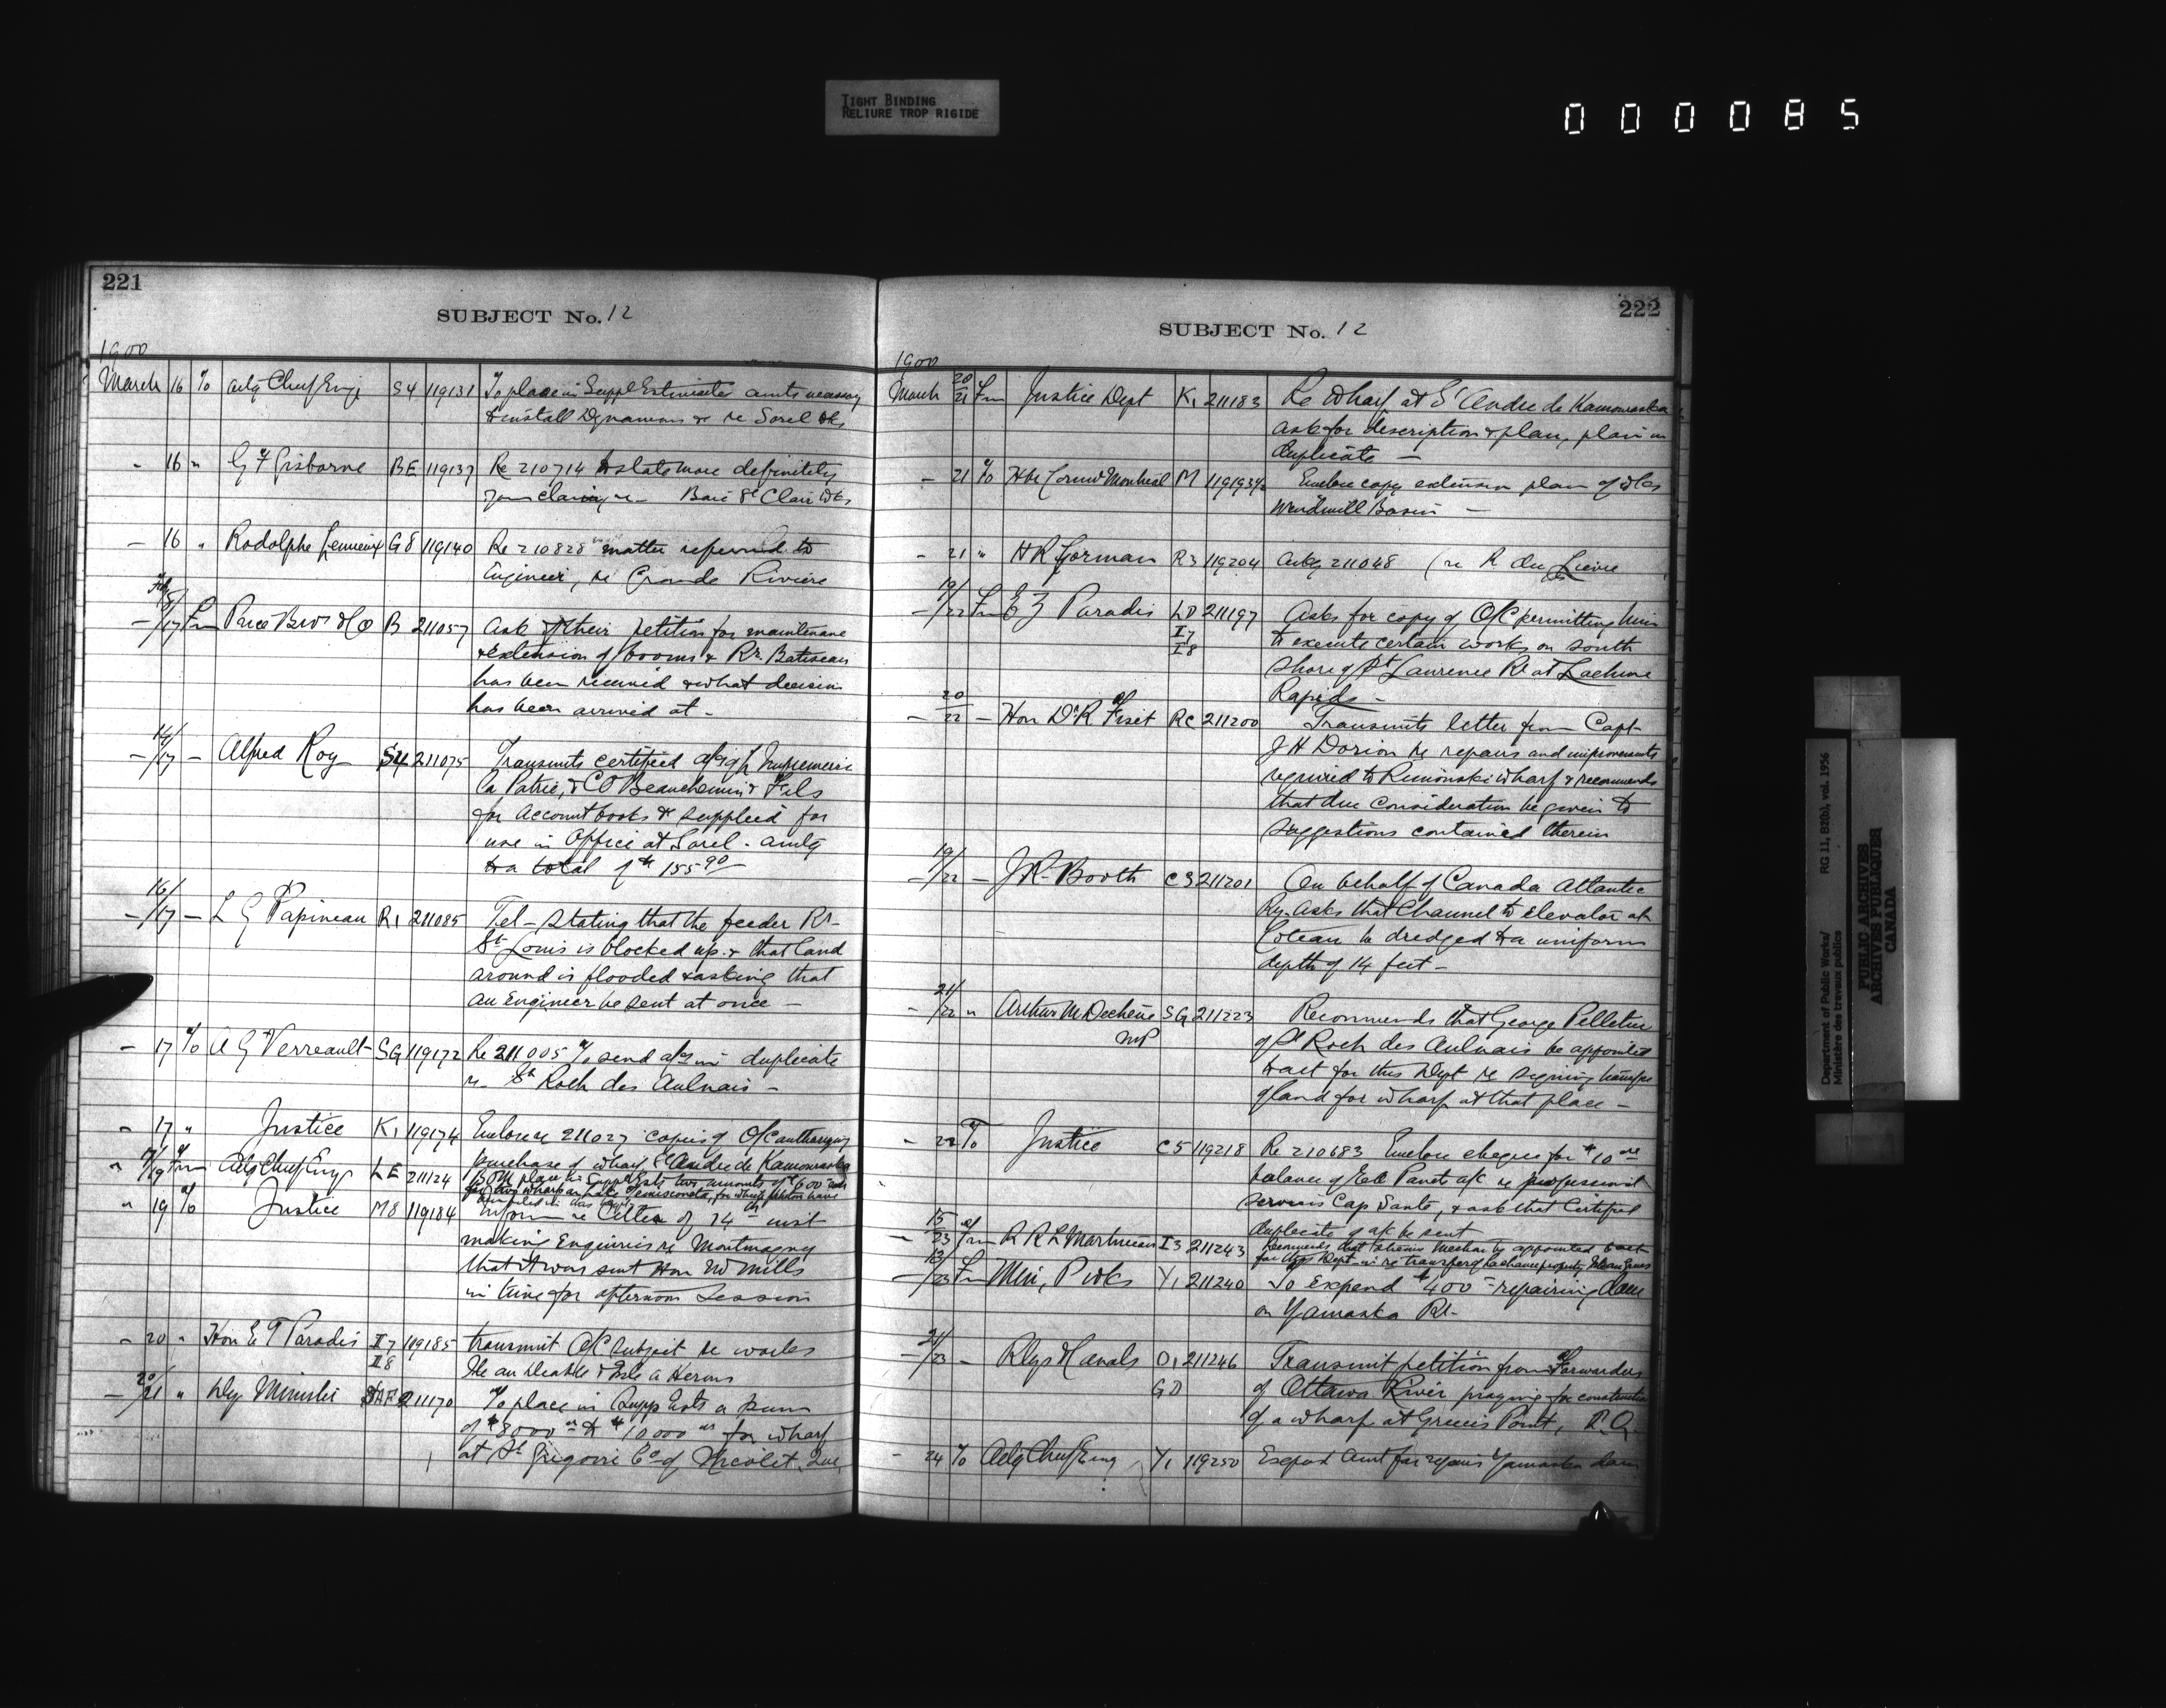 TIGHT BINDING
RELIURE TROP RIGIDE
000085
221
SUBJECT No. 12
1900
March 16 To actg Chief Engr S4 119131 To place in Suppl Estimates amts necessary
to install Dynamos & re Sorel Wks
" 16 " G F Gisborne BE 119137 Re 210714 to state more definitely
your claim re Baie St Clair Wks
— 16 " Rodolphe Lemieux G8 119140 Re 210828 matter referred to
Engineer, re Grande Riviere
— /17 Fm Price Bros & Co B 211057 Ask if their petition for maintenance
& extension of booms & Rr. Batiscan
has been received & what decision
has been arrived at -
— 14/17 — Alfred Roy S4 211075 Transmits certified a/cs of L'Imprimerie
La Patrie, & C O Beauchemin & Fils
for account books &c supplied for
use in Office at Sorel - amtg
to a total of $155 90
— 16/17 — L G Papineau R1 211085 Tel - Stating that the feeder Rr
St Louis is blocked up & that land
around is flooded & asking that
an Engineer be sent at once —
— 17 To A G Verreault SG 119172 Re 211005 To send a/cs in duplicate
re St Roch des Aulnais -
" 17 " Justice K1 119174 Enclose re 211027 copies of O/C authorizing
purchase of wharf St Andre de Kamouraska
" /19 Fm Actg Chief Engr LE 211124 place in Suppl Ests two amounts of $600
for two wharves on Lake Temiscouata, for which petition
" 19 To Justice M8 119184 Inform re Letter of 14th inst
making Enquiries re Montmagny
that it was sent Hon Mr Mills
in time for afternoon Session
— 20 " Hon E T Paradis I7 I8 119185 transmit O/C subject re works
Ile au Diable & Isle a Herons
— 20/21 " Dy Minister 211170 To place in Supp Ests a sum
of $8000 to $10000 for wharf
at St Gregoire Co of Nicolet, Que
222
SUBJECT No. 12
1900
March 20/21 Fm Justice Dept K1 211183 Re Wharf at St Andre de Kamouraska
ask for description & plan, plan in
duplicate —
— 21 To Hbr Comrs Montreal M 119193½ Enclose copy extension plan of Wks
Windmill Basin —
- 21 " H R Gorman R3 119204 Ackg 211048 (re R du Lievre
— 19/22 Fm E Z Paradis LD I7 I8 211197 Asks for copy of O/C permitting him
to execute certain works on south
Shore of St Laurence Rr at Lachine
Rapids -
— 20/22 — Hon Dr R Fiset RC 211200 Transmits letter from Capt
J H Dorion re repairs and improvements
required to Rimouski wharf & recommends
that due consideration be given to
suggestions contained therein
— 19/22 — J R Booth C5 211201 On behalf of Canada Atlantic
Ry. Asks that Channel to Elevator at
Coteau be dredged to a uniform
depth of 14 feet -
— 21/22 " Arthur M Dechêne MP SG 211223 Recommends that George Pelletier
of St Roch des Aulnais be appointed
to act for this Dept re signing transfer
of land for wharf at that place —
" 22 To Justice C5 119218 Re 210683 Enclose cheque for $10 00
balance of Panet a/c re professional
services Cap Santé, & ask that Certified
duplicate of a/c be sent
— 15/23 Fm I3 211243 Recommends that be appointed to act
for this Dept in re transfer of Lachance property
— /23 Fm Min, P Wks Y1 211240 To Expend $400 repairing dam
on Yamaska Rr.
— 21/23 — Rlys & Canals O1 GD 211246 Transmit petition from Forwarders
of Ottawa River praying for construction
of a wharf at Greens Point, P.Q.
— 24 To Actg Chief Eng Y1 119250 Expend amt for repairs Yamaska dam
Department of Public Works/ RG 11, B2(b), vol. 1956
Ministère des travaux publics
PUBLIC ARCHIVES
ARCHIVES PUBLIQUES
CANADA